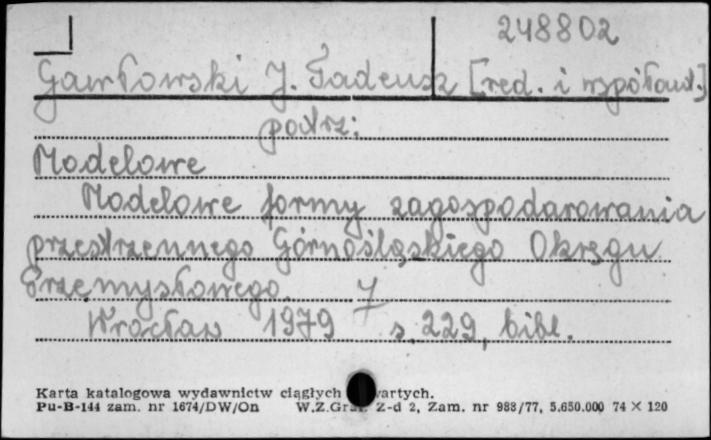 248802
Gawłowski J. Tadeusz [red. i współaut.]
patrz:
Modelowe
Modelowe formy zagospodarowania
przestrzennego Górnośląskiego Okręgu
Przemysłowego.
Wrocław 1979 s. 229, bibl.
Karta katalogowa wydawnictw ciągłych
Pu-B-144 zam. nr 1674/DW/On W.Z.Graf. Z-d 2, Zam. nr 988/77, 5.650.000 74 × 120